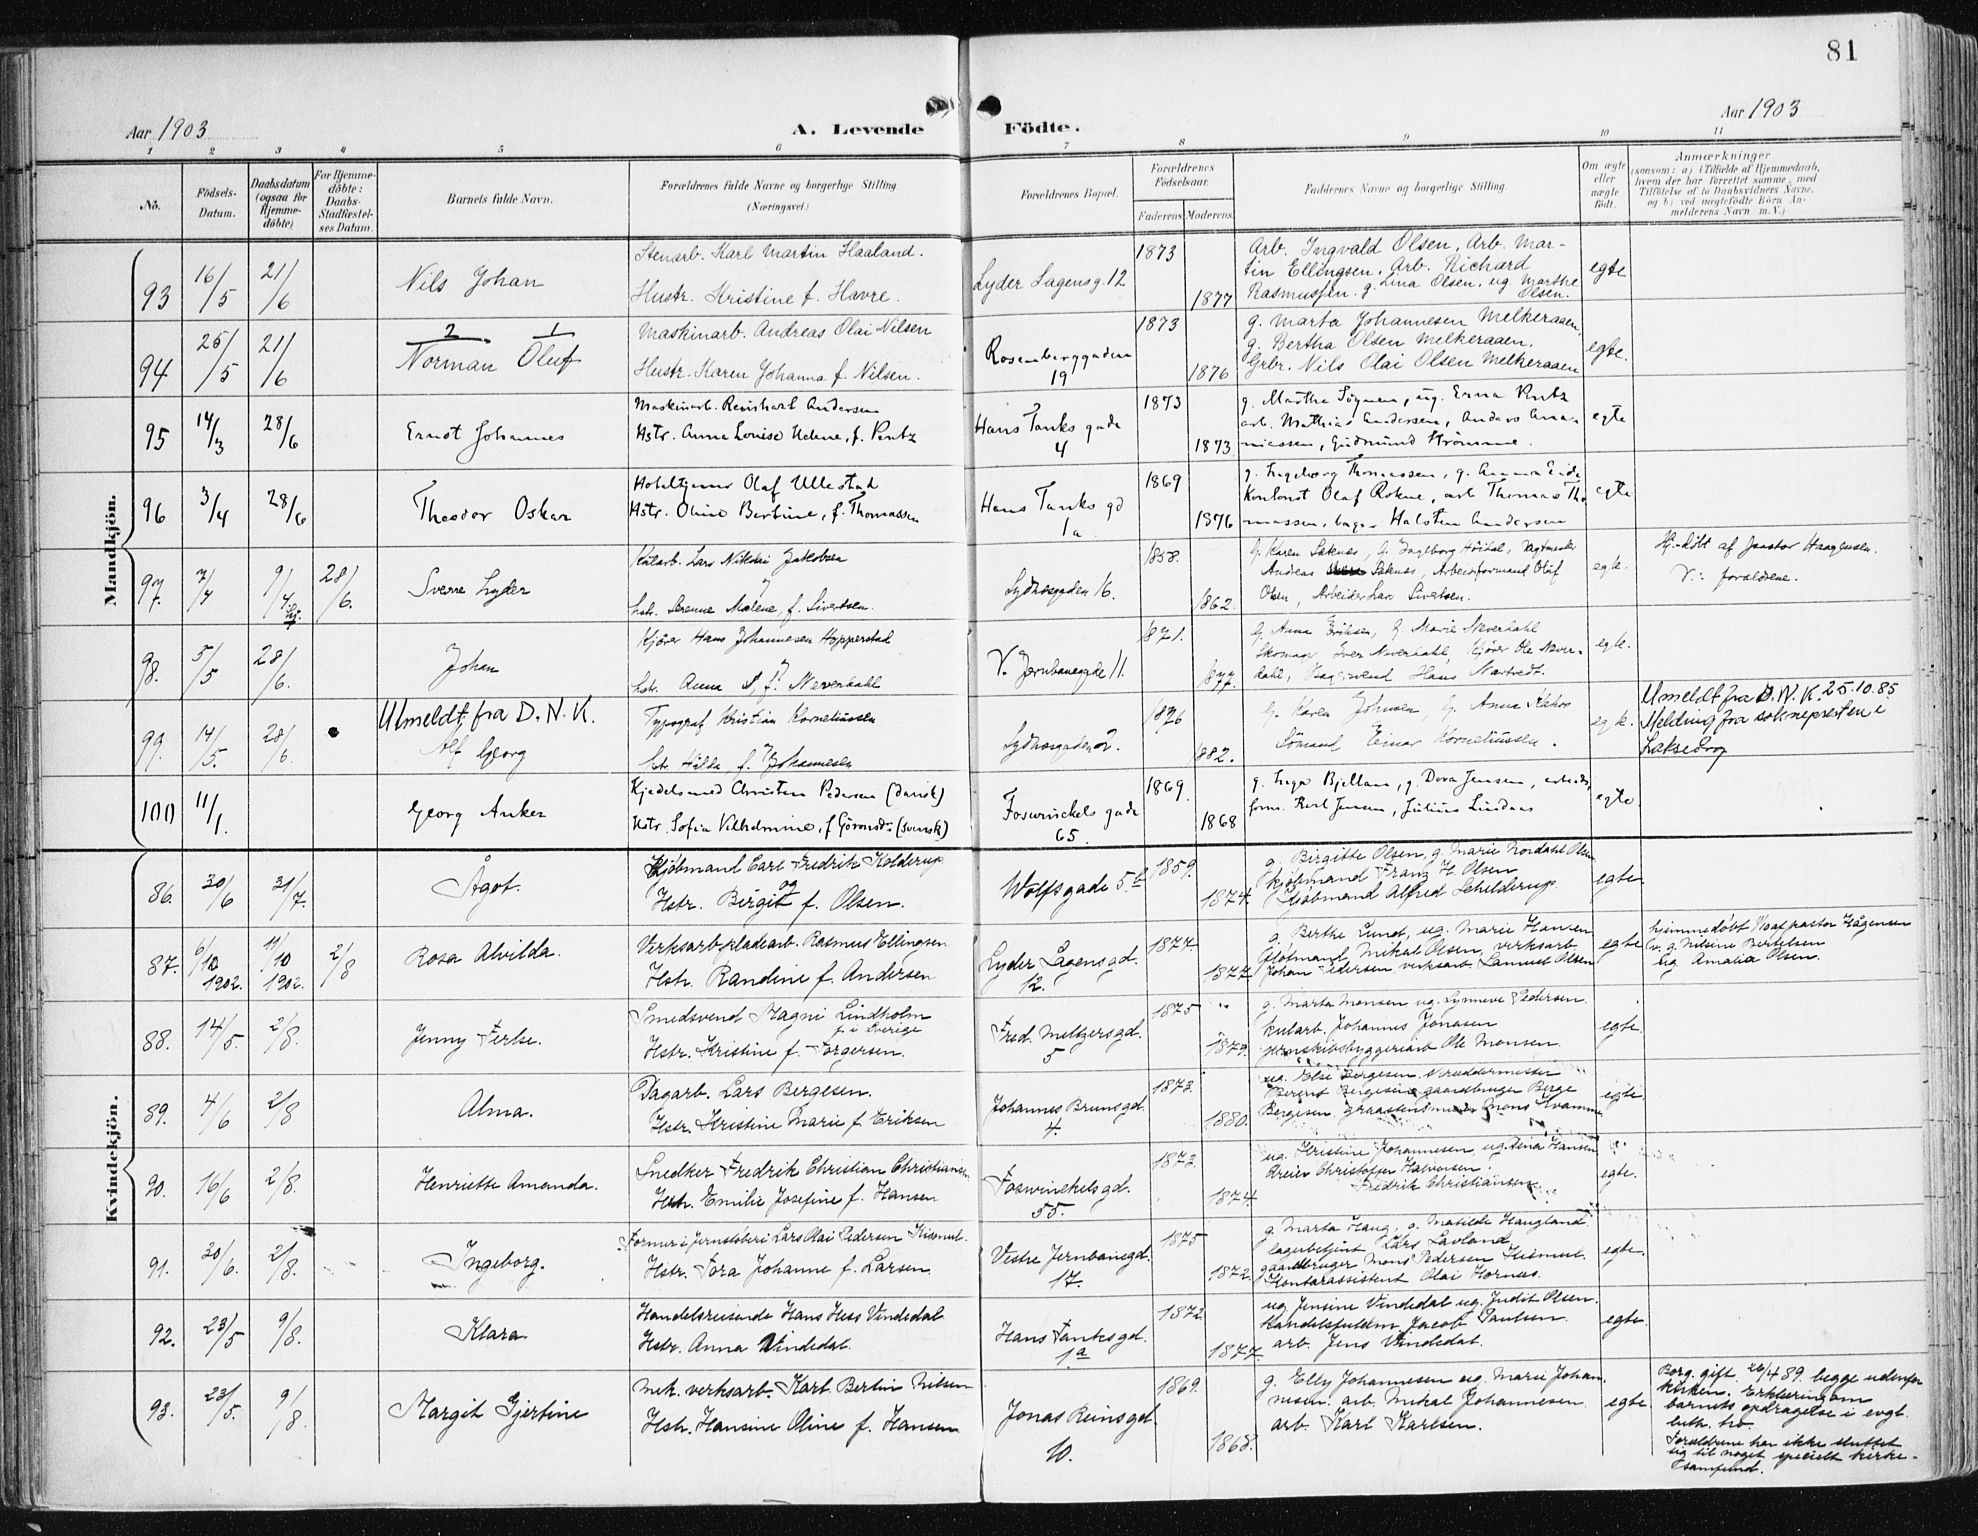 81
Aar 1903
A. Levende Födte.
Aar 1903
1 2 3 4 5 6 7 8 9 10 11
No.
Födsels-Datum.
Daabsdatum (ogsaa for Hjemme-döbte)
For Hjemme-döbte: Daabs-Stadfæstel-ses Datum.
Barnets fulde Navn.
Forældrenes fulde Navne og borgerlige Stilling (Næringsvei.)
Forældrenes Bopæl.
Forældrenes Födselsaar.
Faderens Moderens
Faddernes Navne og borgerlige Stilling.
Om ægte eller uægte födt.
Anmærkninger
(saasom: a) i Tilfælde af Hjemmedaab, hvem der har forrettet samme, med Tilföielse af to Daabsvidners Navne. og b) ved uægtefödte Börn An-melderens Navn m. V.)
Mandkjön.
93 16/5 21/6 Nils Johan
Stenarb. Karl Martin Haaland.
Hustr. Kristine f. Havre.
Lyder Sagensg. 12
1873 1877
Arb. Ingvald Olsen, Arb. Mar-
tin Ellingsen, Arb. Richard
Rasmussen. g. Lina Olsen, ug. Marthe
Olsen.
egte
94 25/5 21/6
2 1
Norman Oluf
Maskinarb. Andreas Olai Nilsen
Hustr. Karen Johanna f. Nilsen.
Rosenberggaden
19
1873 1876
g. Marta Johannesen Melkeraaen,
g. Bertha Olsen Melkeraaen.
Grbr. Nils Olai Olsen Melkeraaen
egte.
95 14/3 28/6 Ernst Johannes
Maskinarb. Reinhart Andersen
Hstr. Anna Louise Helene, f. Pentz
Hans Tanks gade
4
1873 1873
g. Martha, ug. Erna Pentz
arb. Mathias Andersen, Anders Ana-
niassen, Gudmund Strömme.
egte
96 3/4 28/6 Theodor Oskar
Olaf Ullestad
Hstr. Oline Bertine, f. Thomassen
Hans Tanks gd
1a
1869 1876
g. Ingeborg Thomassen, g. Anna Eide
Olaf Rokne, arb Thomas Tho
massen, Halsten Andersen
egte
97. 7/4 9/4 28/6. Sverre Lyder
Kularb. Lars Nikolai Jakobsen
hstr. Serenne Malene, f. Sivertsen.
Sydnesgaden 16.
1858. 1862.
G. Karen Seknes, G. Ingeborg Höidal, Vegtmester
Andreas Seknes, Arbeidsformand Oluf
Olsen, Arbeider Lars Sivertsen.
egte.
Hj.-döbt af pastor Haagensen.
V.: forældrene.
98. 5/5 28/6. Johan
Kjörer Hans Johannesen Hopperstad
hstr. Anna S. f. Neverdahl
V. Jernbanegade 11.
1871. 1877.
G. Anna Eriksen, G. Marie Neverdahl
Skomager Iver Neverdahl, Kjörer Ole Never-
dahl, Bagersvend Hans Nartvedt.
egte.
99. 14/5. 28/6.
Utmeldt fra D. N. K.
Alf Georg
Typograf Kristian Korneliussen
hstr. Hilda f. Johannesen
Sydnesgaden 2.
1876 1882.
G. Karen Johnsen, G. Anna
Sömand Einar Korneliussen.
egte.
Utmeldt fra D. N. K. 25.10.85
Melding fra sokneprester i
Lakselv
100 11/1. Georg Anker
Kjedelsmed Christen Pedersen (dansk)
Hstr. Sofia Vilhelmine, f. (svensk)
Foswinckels gade
65.
1869. 1868
g. Inga Bjelland, g. Dora Jensen, arbeids,
form. Karl Jensen, Julius Lindaas
egte.
Kvindekjön.
86. 30/6 31/7. Ågot.
Kjöbmand Carl Fredrik Kolderup
og
Hstr. Birgit f. Olsen.
Wolfsgade 5.b
1859. 1874.
g. Birgitte Olsen, g. Marie Nordahl Olsen
kjöbmand Franz H. Olsen
Kjöbmand Alfred Schilderup.
egte.
87. 6/10 1902. 19/10 1902. 2/8 Rosa Alvilda.
Verksarb. pladearb. Rasmus Ellingsen
Hstr. Randine f. Andersen
Lyder Sagensgd.
12.
1877 1877.
g. Berthe Lund, ug. Marie Hansen
Mikal Olsen, verksarb.
Johan Pedersen verksarb. Samuel Olsen
egte
hjemmedøbt v/ Haagensen
v. g. Nilsine Bertelsen
ug Amalia Olsen.
88. 14/5. 2/8. Jenny Terese.
Smedsvend Magni Lindholm
f. i Sverige
Hstr. Kristine f. Torgersen.
Fred. Meltzersgd.
5
1875 1879.
g. Marta Monsen ug. Synneve Pedersen
kularb. Johannes Jonasen
jernskibsbyggeriarb Ole Monsen.
egte.
89. 4/6 2/8 Alma.
Dagarb. Lars Bergesen.
Hstr. Kristine Marie f. Eriksen
Johannes Brunsgd.
4.
1873. 1880.
ug. Else Bergesen
Berent Bergesen gaardbruger Berge
Bergesen, graastensmurer Mons Kvamme
egte.
90. 16/6 2/8. Henriette Amanda.
Snedker Fredrik Christian Christiansen
Hstr. Emilie Josefine f. Hansen
Foswinckelsgd.
55.
1873. 1874.
ug. Kristine Johannesen, ug. Lina Hansen
dreier Christoffer Halvorsen.
Fredrik Christiansen.
egte.
91. 30/6. 2/8. Ingeborg.
Former i Jernstöberi Lars Olai Pedersen Kismul.
Hstr. Tora Johanne f. Larsen.
Vestre Jernbanegd.
17.
1875 1872.
g. Marta Haug, g. Matilde Haugland
lagerbetjent Lars Lavland
gaardbruger Mons Pedersen Kismul.
Kontorassistent Olai Hornes.
egte.
92. 23/5 9/8. Klara.
Handelsreisende Hans Hess Vindedal
Hstr. Anna Vindedal.
Hans Tanksgd.
1a
1872 1877.
ug. Jensine Vindedal ug. Judit Olsen.
Handelsfuldm. Jacob Paulsen
arb. Jens Vindedal.
egte.
93. 23/5. 9/8. Margit Gjertine
Mek. verksarb. Karl Bertin Nilsen
Hstr. Hansine Oline f. Hansen
Jonas Reinsgd.
10.
1869. 1868.
g. Elly Johannesen ug. Marie Johan
nesen. arb. Mikal Johannesen
arb. Karl Karlsen.
egte.
Borg. gift 26/4 89. begge udenfor
kirken. Erklæring om
barnets opdragelse i evgl.
luth. tro.
Forældrene har ikke sluttet
sig til noget specielt kirke-
samfund.